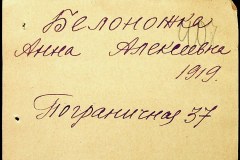 Белоножка
Анна Алексеевна
1919.
Пограничная 37